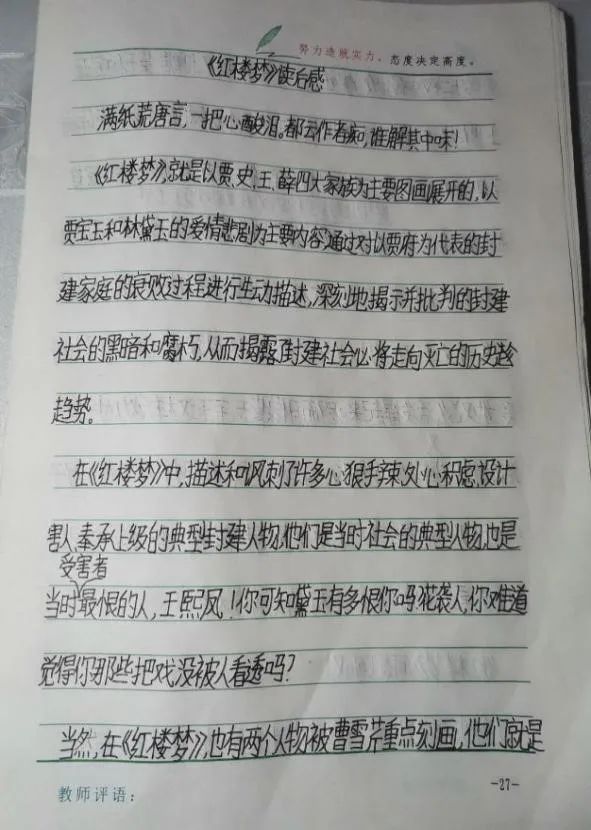 努力造就实力，态度决定高度。
《红楼梦》读后感
满纸荒唐言，一把心酸泪。都云作者痴，谁解其中味！
《红楼梦》，就是以贾、史、王、薛四大家族为主要图画展开的，以
贾宝玉和林黛玉的爱情悲剧为主要内容，通过对以贾府为代表的封
建家庭的衰败过程进行生动描述，深刻地揭示并批判的封建
社会的黑暗和腐朽，从而揭露封建社会必将走向灭亡的历史趋
趋势。
在《红楼梦》中，描述和讽刺了许多心狠手辣，处心积虑，设计
害人，奉承上级的典型封建人物，他们是当时社会的典型人物，也是
受害者
当时最恨的人，王熙凤！你可知黛玉有多恨你吗？花袭人，你难道
觉得你那些把戏没被人看透吗？
当然，在《红楼梦》，也有两个人物被曹雪芹重点刻画，他们就是
教师评语：
-27-